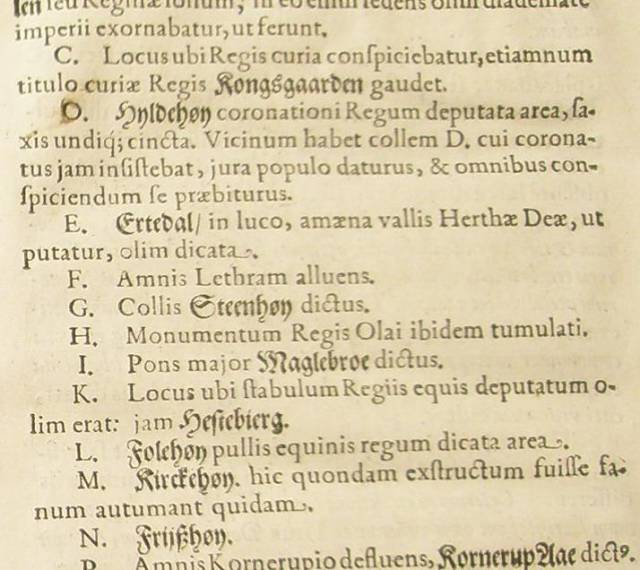 sen seu Reginæ solium, in eo enim sedens omni diademate
imperii exornabatur, ut ferunt.
C. Locus ubi Regis curia conſpiciebatur, etiamnum
titulo curiæ Regis Kongsgaarden gaudet.
D. Hyldehøy coronationi Regum deputata area, ſa-
xis undiq; cincta. Vicinum habet collem D. cui corona-
tus jam inſiſtebat, jura populo daturus, & omnibus con-
ſpiciendum ſe præbiturus.
E. Ertedal/ in luco, amæna vallis Herthæ Deæ, ut
putatur, olim dicata.
F. Amnis Lethram alluens.
G. Collis Steenhøy dictus.
H. Monumentum Regis Olai ibidem tumulati.
I. Pons major Maglebroe dictus.
K. Locus ubi ſtabulum Regiis equis deputatum o-
lim erat: jam Heſtebierg.
L. Folehøy pullis equinis regum dicata area.
M. Kirckehøy. hic quondam exſtructum fuiſſe fa-
num autumant quidam.
N. Frijßhøy.
P. Amnis Kornerupio defluens, Kornerup Aae dictꝰ.